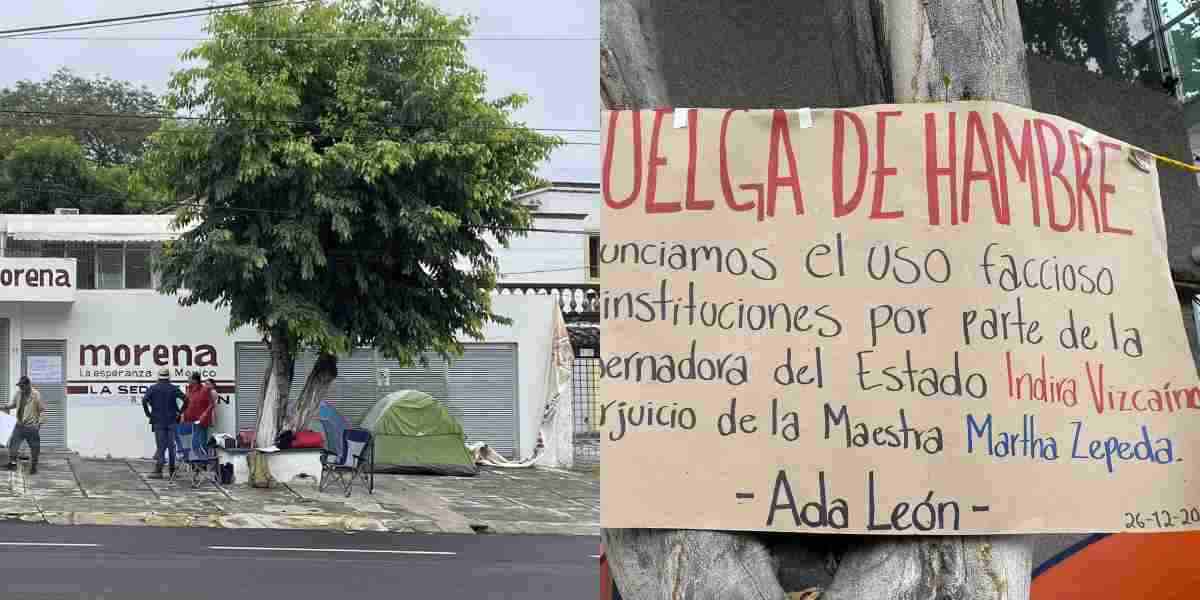 morena
morena
La esperanza de México
LA SED
UELGA DE HAMBRE
unciamos el uso faccioso
instituciones por parte de la
bernadora del Estado Indira Vizcaíno
rjuicio de la Maestra Martha Zepeda.
- Ada León -
26-12-20